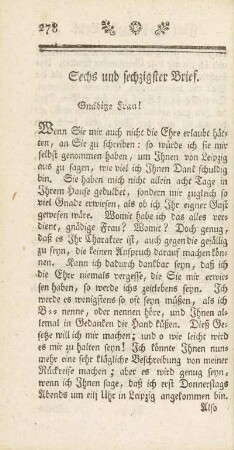 278
Sechs und sechzigster Brief.
Gnädige Frau!
Wenn Sie mir auch nicht die Ehre erlaubt hät-
ten, an Sie zu schreiben: so würde ich sie
mir selbst genommen haben, um Ihnen von Leipzig
aus zu sagen, wie viel ich Ihnen Dank schuldig
bin. Sie haben mich nicht allein acht Tage in
Ihrem Hause geduldet, sondern mir zugleich so
viel Gnade erwiesen, als ob ich Ihr eigner Gast
gewesen wäre. Womit habe ich das alles ver-
dient, gnädige Frau? Womit? Doch genug,
daß es Ihr Charakter ist, auch gegen die gefällig
zu seyn, die keinen Anspruch darauf machen kön-
nen. Kann ich dadurch dankbar seyn, daß ich
die Ehre niemals vergesse, die Sie mir erwie-
sen haben, so werde ichs zeitlebens seyn. Ich
werde es wenigstens so oft seyn müßen, als ich
B-- nenne, oder nennen höre, und Ihnen al-
lemal in Gedanken die Hand küßen. Dieß Ge-
setze will ich mir machen; und o wie leicht wird
es mir zu halten seyn! Ich könnte Ihnen nun-
mehr eine sehr klägliche Beschreibung von meiner
Rückreise machen; aber es wird genug seyn,
wenn ich Ihnen sage, daß ich erst Donnerstags
Abends um eilf Uhr in Leipzig angekommen bin.
Also